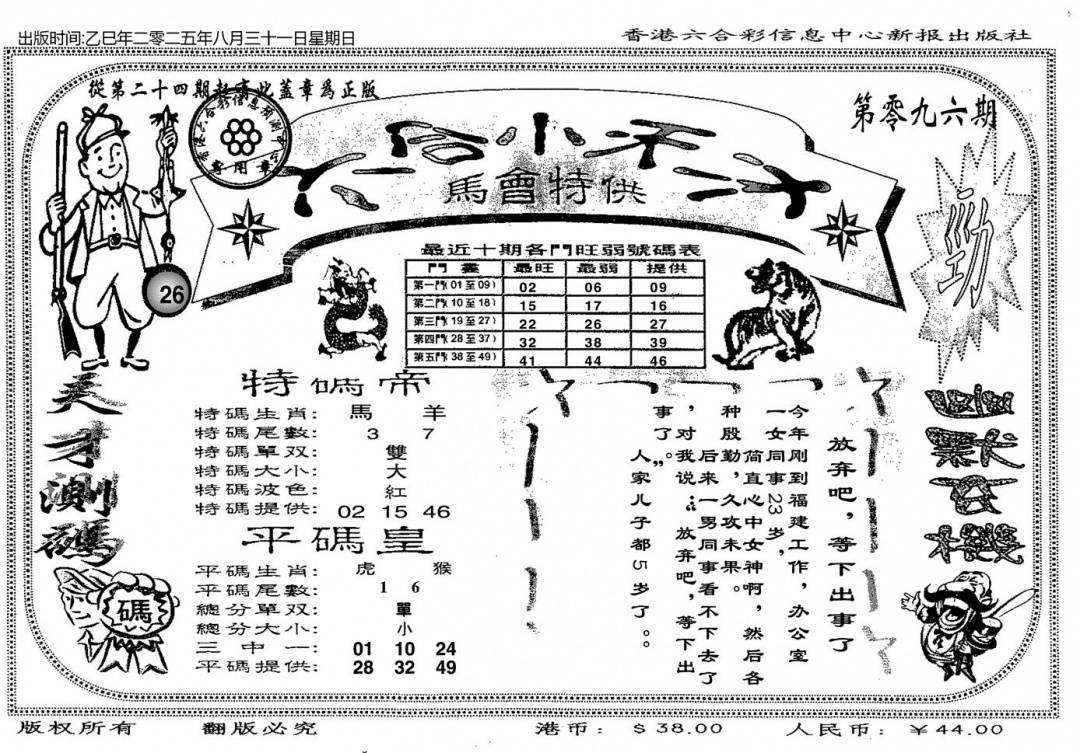 出版时间:乙巳年二零二五年八月三十一日星期日
香港六合彩信息中心新报出版社
從第二十四期起 此蓋章爲正版
專用章
第零九六期
馬會特供
勁
26
最近十期各門旺弱號碼表
門 最旺 最弱 提供
第一門(01至09) 02 06 09
第二門(10至18) 15 17 16
第三門(19至27) 22 26 27
第四門(28至37) 32 38 39
第五門(38至49) 41 44 46
天才測碼
碼
特碼帝
特碼生肖: 馬 羊
特碼尾數: 3 7
特碼單双: 雙
特碼大小: 大
特碼波色: 紅
特碼提供: 02 15 46
平碼皇
平碼生肖: 虎 猴
平碼尾數: 1 6
總分單双: 單
總分大小: 小
三中一: 01 10 24
平碼提供: 28 32 49
放弃吧，等下出事了
今年刚到福建工作，办公室
一女同事23岁，
简直心中女神啊，然后各
种殷勤，久攻未果。
后来一男同事看不下去了
，对我说：“放弃吧，等下出
事了”。
人家儿子都5岁了。。
版权所有 翻版必究 港币: $38.00 人民币: ￥44.00